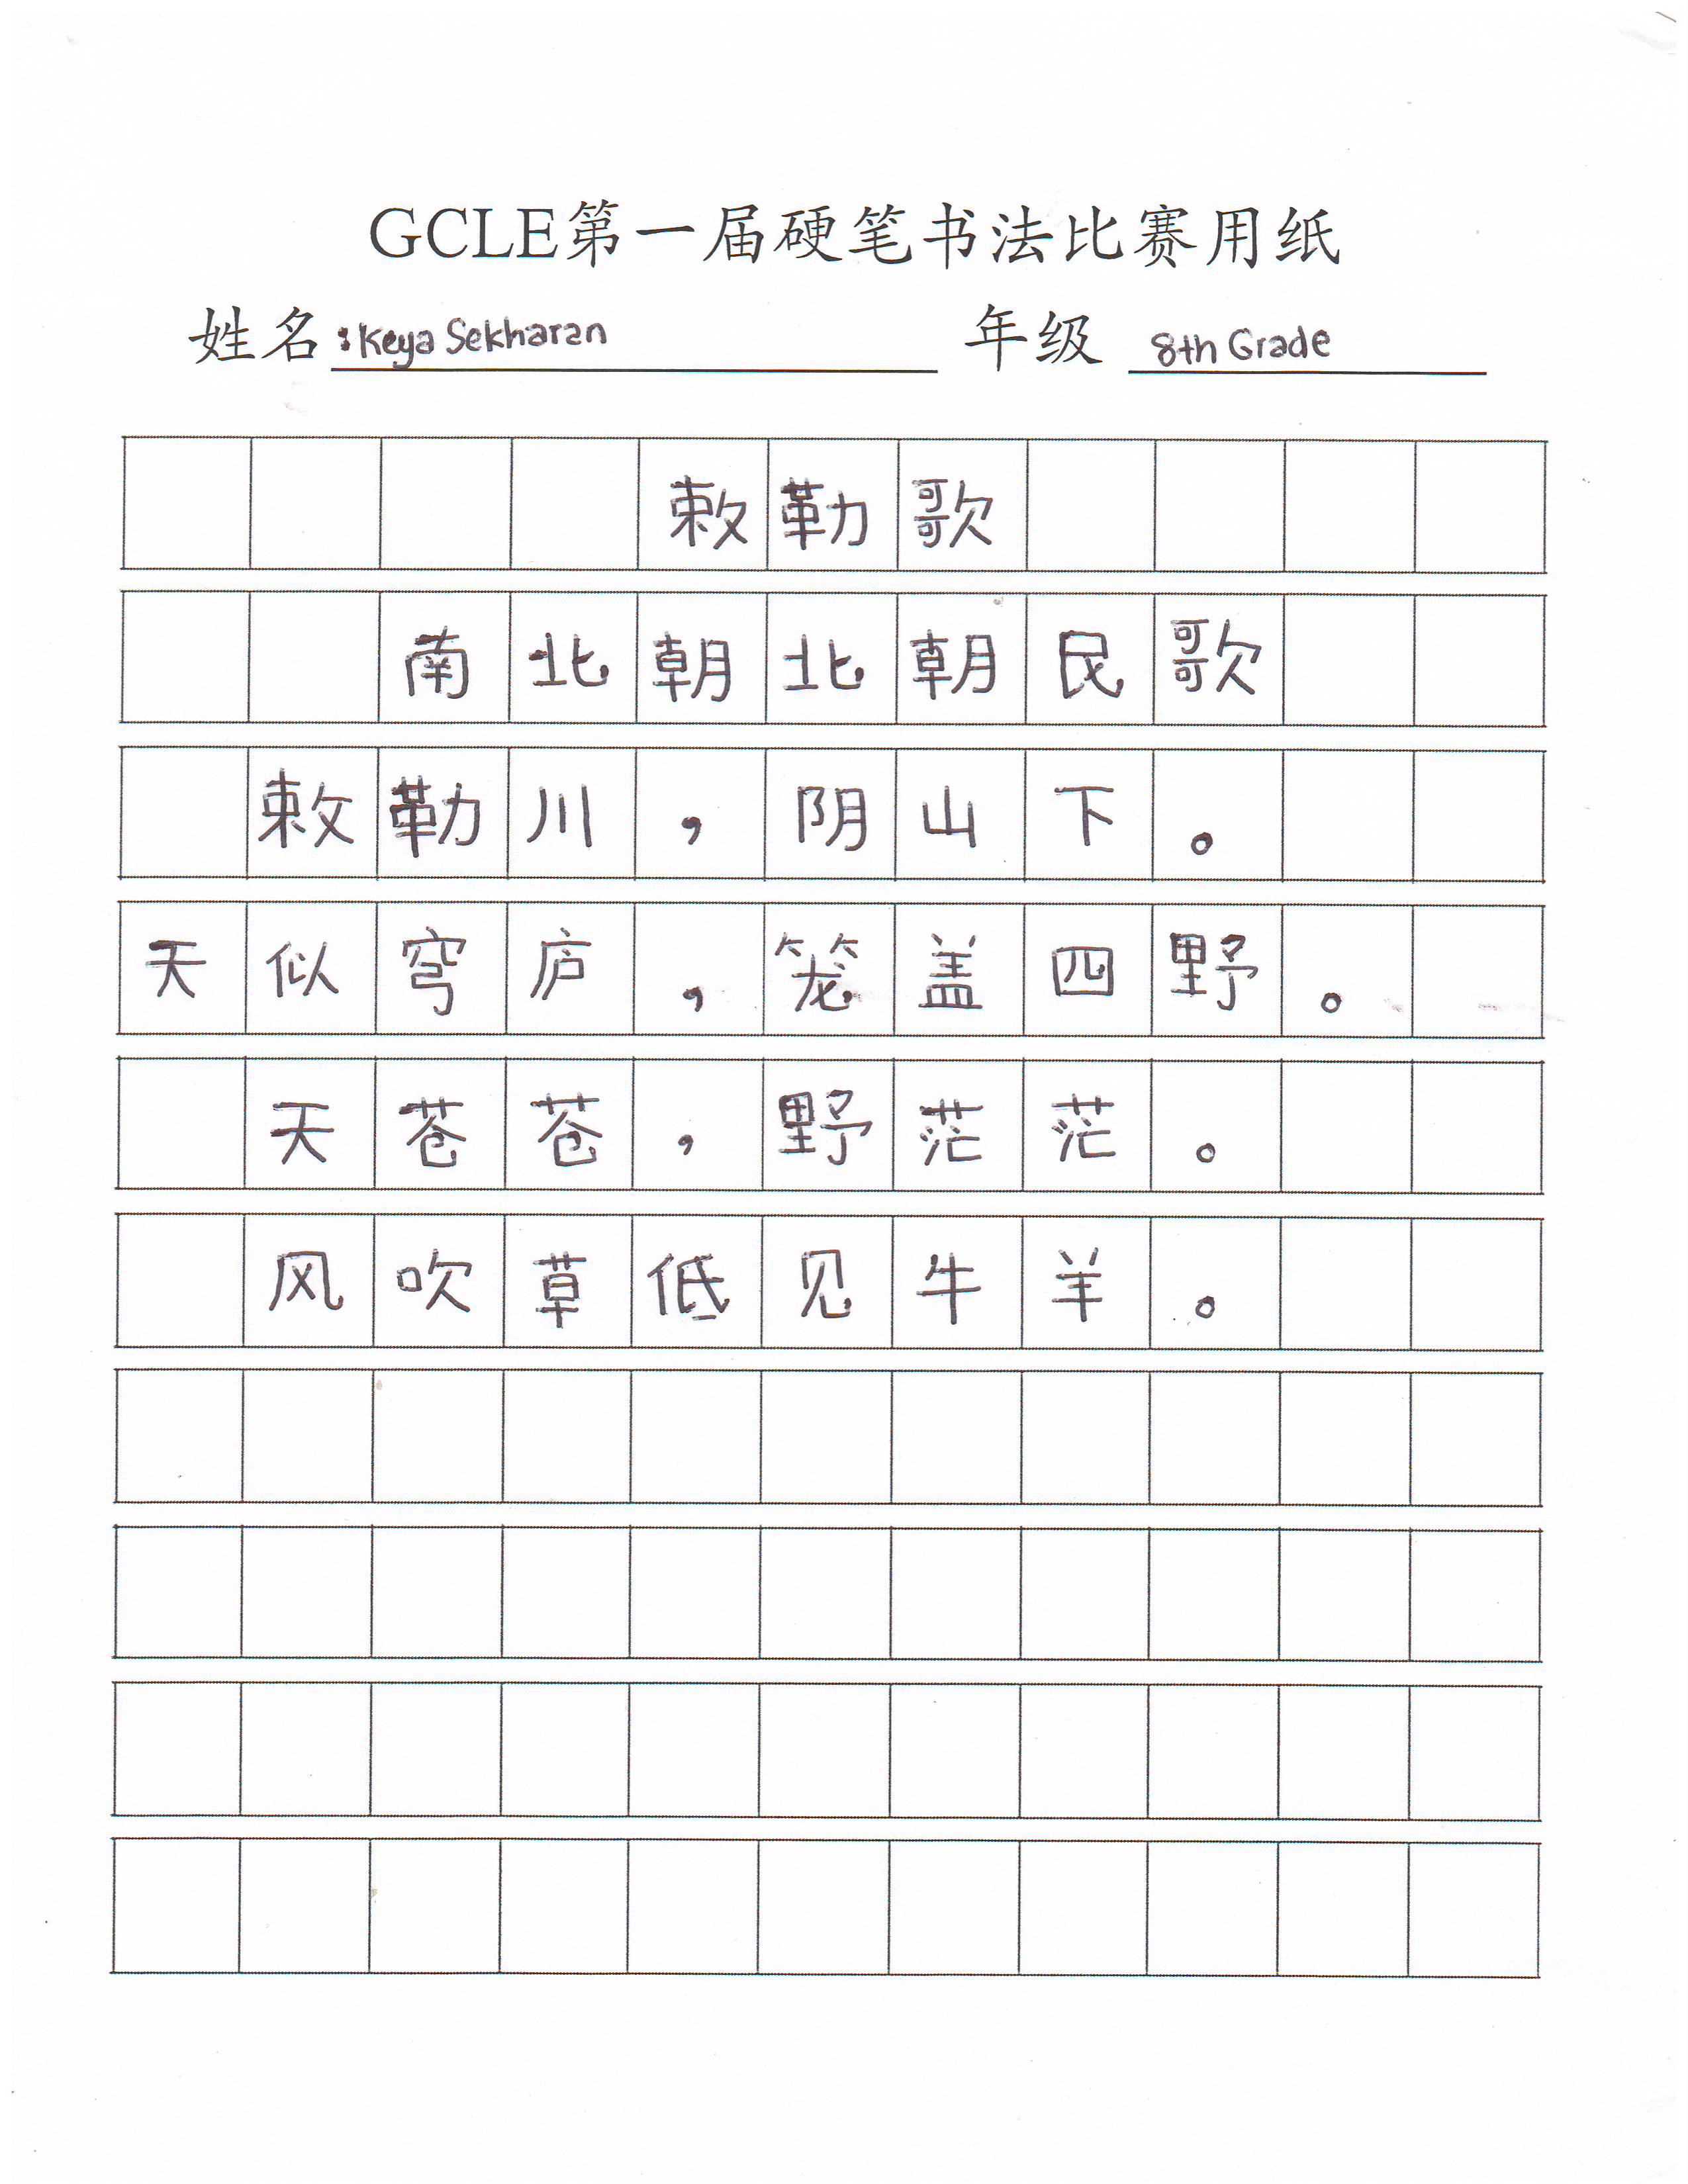 GCLE第一届硬笔书法比赛用纸
姓名:Keya Sekharan 年级 8th Grade
敕勒歌
南北朝北朝民歌
敕勒川，阴山下。
天似穹庐，笼盖四野。
天苍苍，野茫茫。
风吹草低见牛羊。